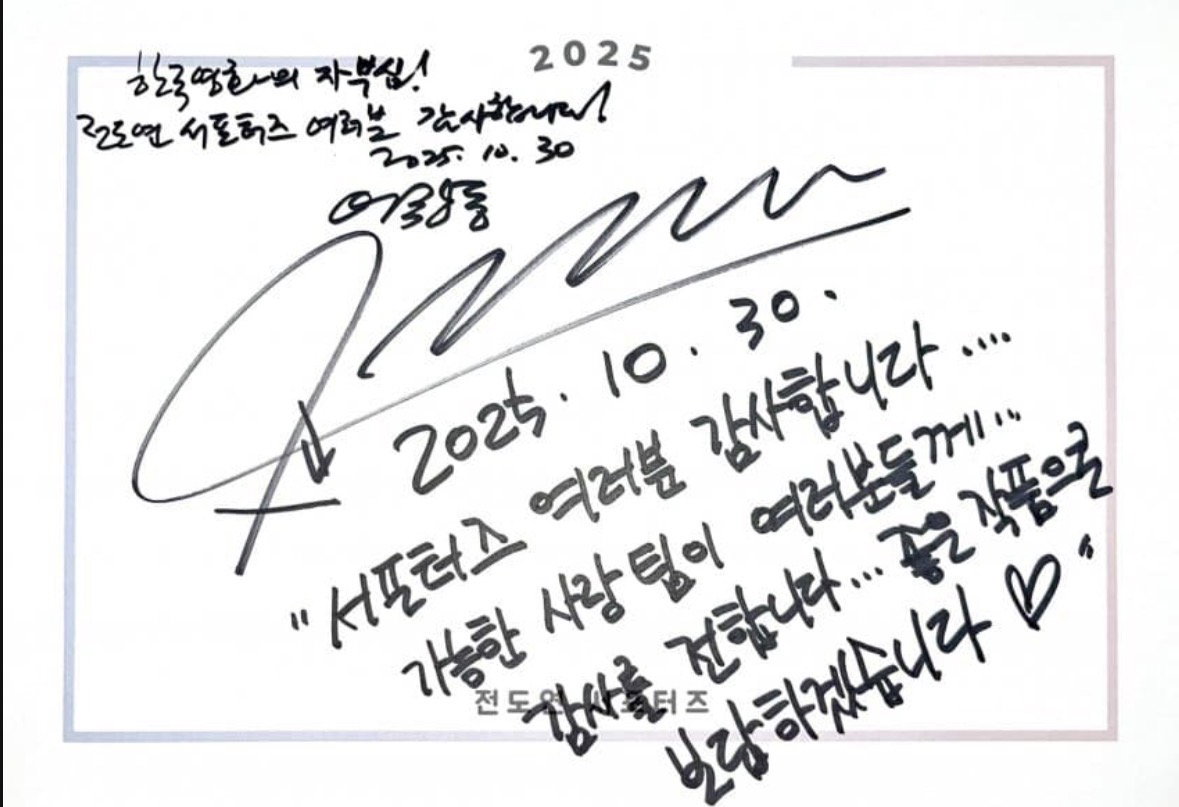 2025
한국영화의 자부심!
전도연 서포터즈 여러분 감사합니다!
2025. 10. 30
이창동
2025. 10. 30.
"서포터즈 여러분 감사합니다....
가능한 사랑 팀이 여러분들께...
감사를 전합니다... 좋은 작품으로
보답하겠습니다 ♡"
전도연 서포터즈